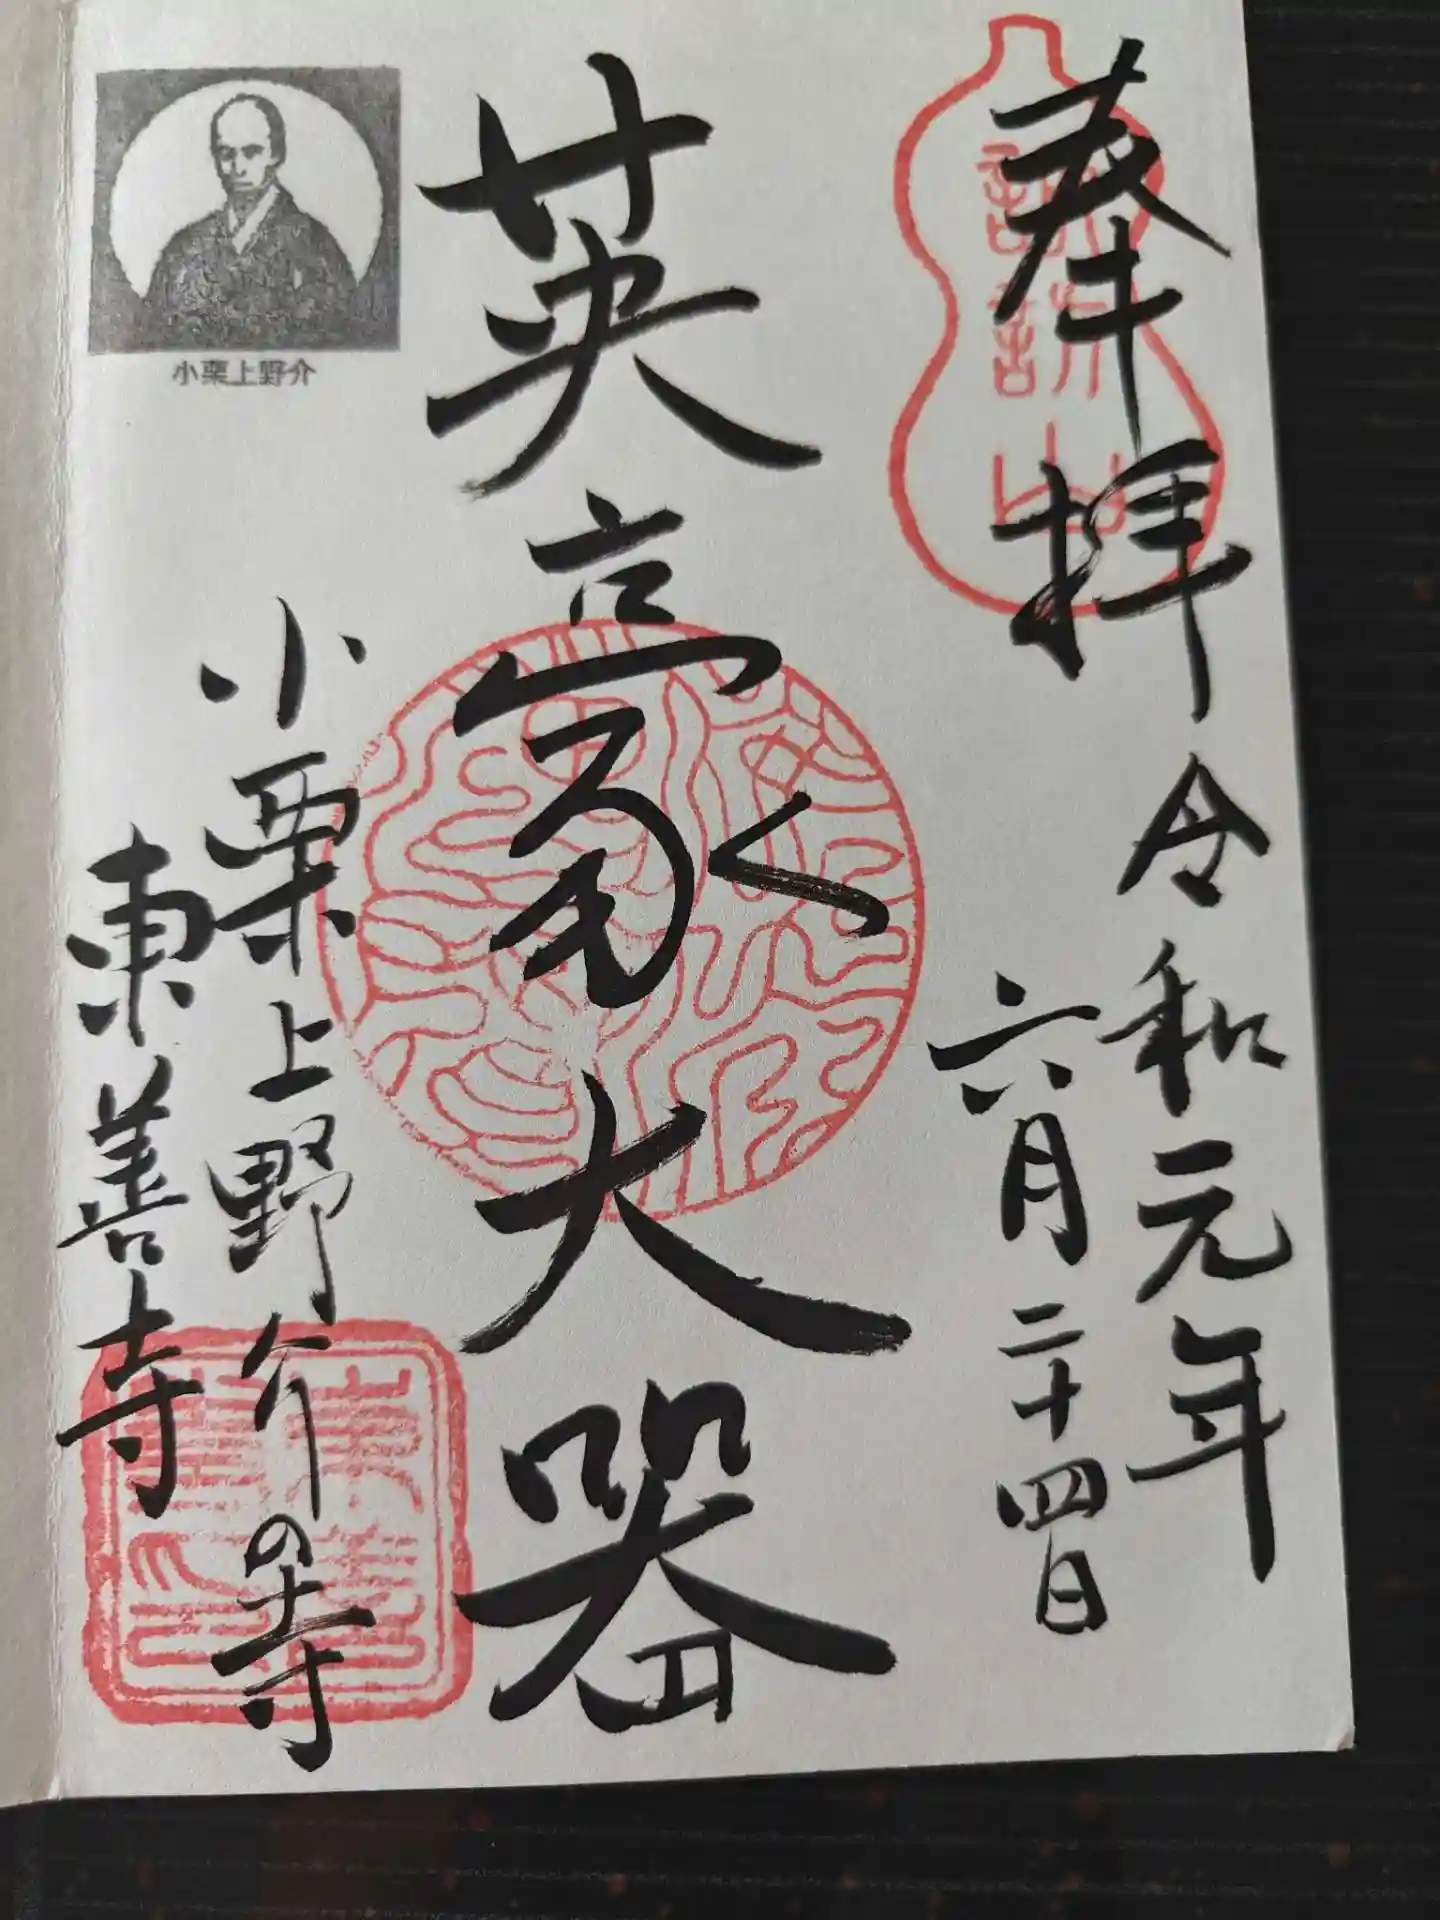 奉拝
令和元年
六月二十四日
英豪大器
小栗上野介
小栗上野介の寺
東善寺